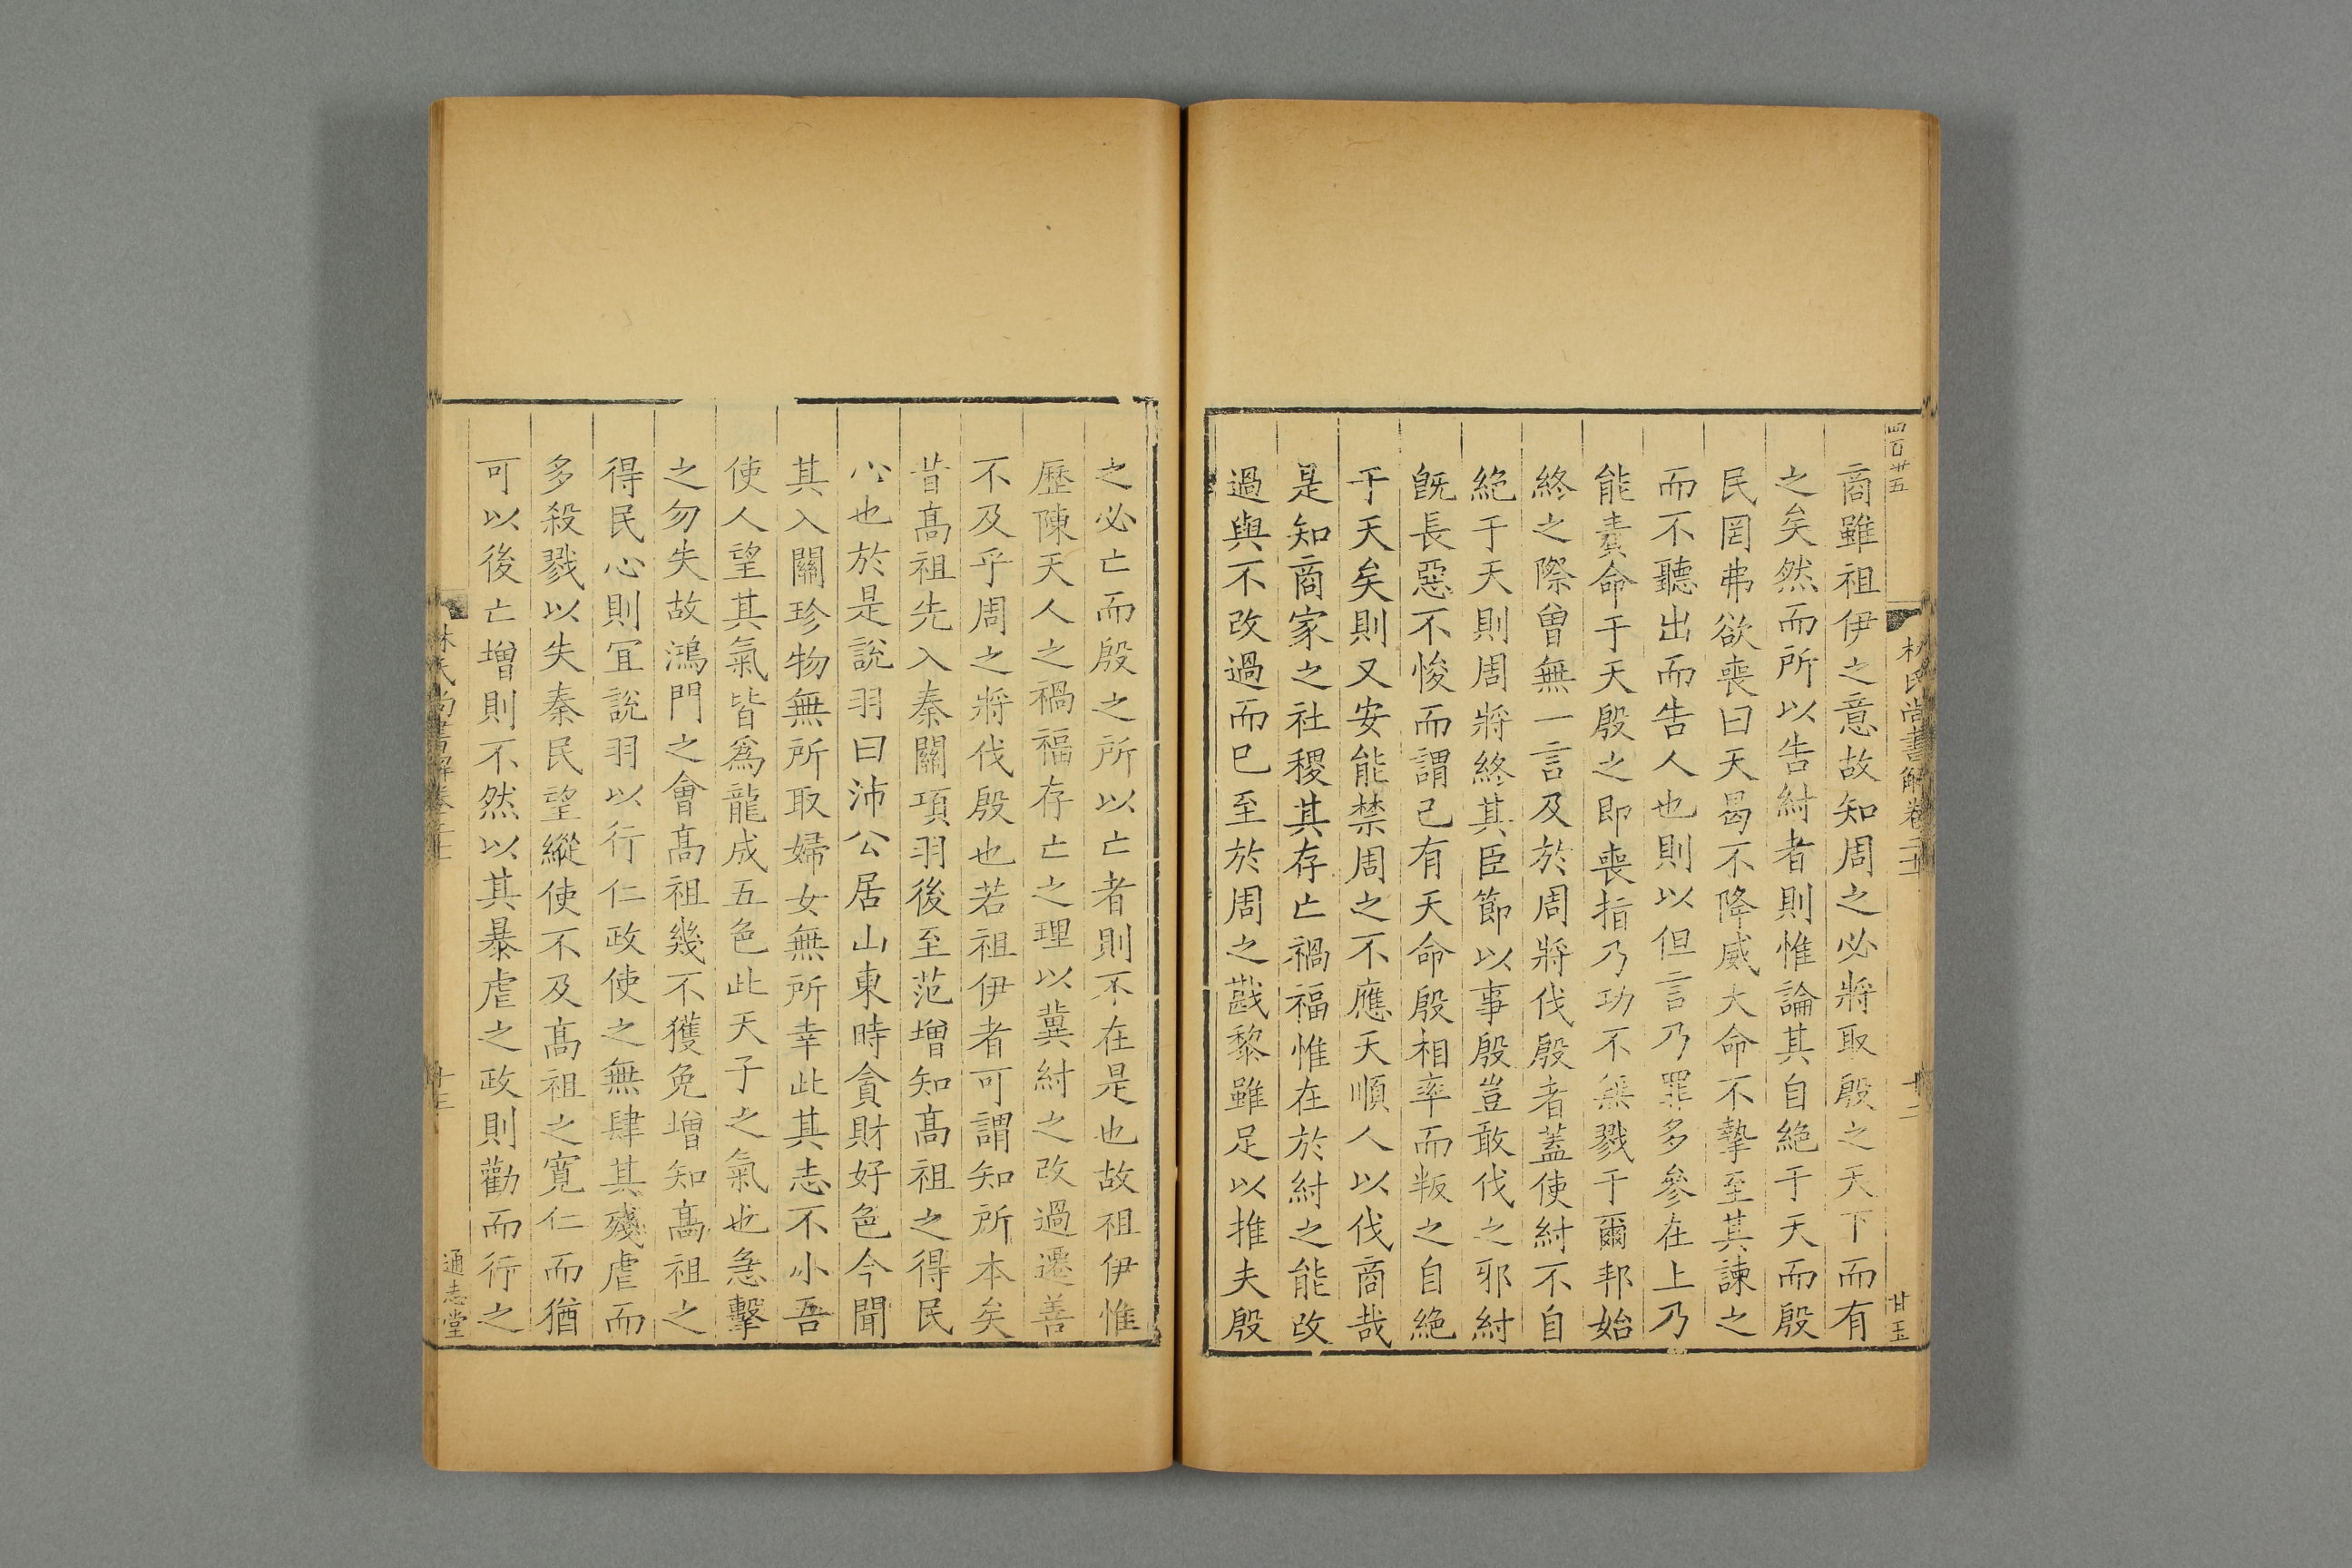 四百廿五
林氏尚書解卷二十
十二
甘玉
商雖祖伊之意故知周之必將取殷之天下而有
之矣然而所以告紂者則惟論其自絶于天而殷
民罔弗欲喪曰天曷不降威大命不摯至其諫之
而不聽出而告人也則以但言乃罪多參在上乃
能責命于天殷之即喪指乃功不無戮于爾邦始
終之際曾無一言及於周將伐殷者蓋使紂不自
絶于天則周將終其臣節以事殷豈敢伐之邪紂
旣長惡不悛而謂己有天命殷相率而叛之自絶
于天矣則又安能禁周之不應天順人以伐商哉
是知商家之社稷其存亡禍福惟在於紂之能改
過與不改過而已至於周之戡黎雖足以推夫殷
之必亡而殷之所以亡者則不在是也故祖伊惟
歷陳天人之禍福存亡之理以冀紂之改過遷善
不及乎周之將伐殷也若祖伊者可謂知所本矣
昔髙祖先入秦關項羽後至范增知髙祖之得民
心也於是說羽曰沛公居山東時貪財好色今聞
其入關珍物無所取婦女無所幸此其志不小吾
使人望其氣皆爲龍成五色此天子之氣也急擊
之勿失故鴻門之會髙祖幾不獲免增知髙祖之
得民心則宜說羽以行仁政使之無肆其殘虐而
多殺戮以失秦民望縱使不及髙祖之寬仁而猶
可以後亡增則不然以其暴虐之政則勸而行之
林氏尚書解卷二十
十三
通志堂